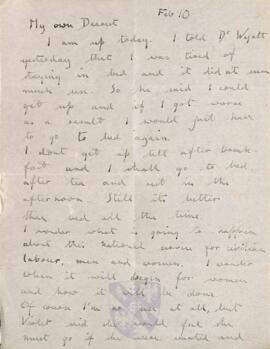 Feb 10
My own Dearest
I am up today. I told Dr Wyatt
yesterday that I was tired of
staying in bed and it did not seem
much use. So he said I could
get up and if I got worse
as a result I would just have
to go to bed again.
I dont get up till after break-
fast and I shall go to bed
after tea and not in the
afternoon. Still its better
than bed all the time.
I wonder what is going to happen
about this national service for civilian
labour, men and women. I wonder
when it will begin for women
and how it will be done.
Of course I'm no at all, but
Violet said she would feel she
must go if she were wanted and